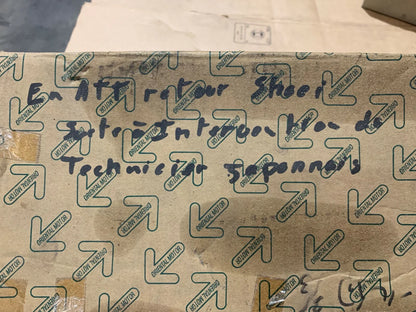 En Att retour Sheei
Suite à Intervention de
Technicien japonnais
ORIENTAL MOTOR